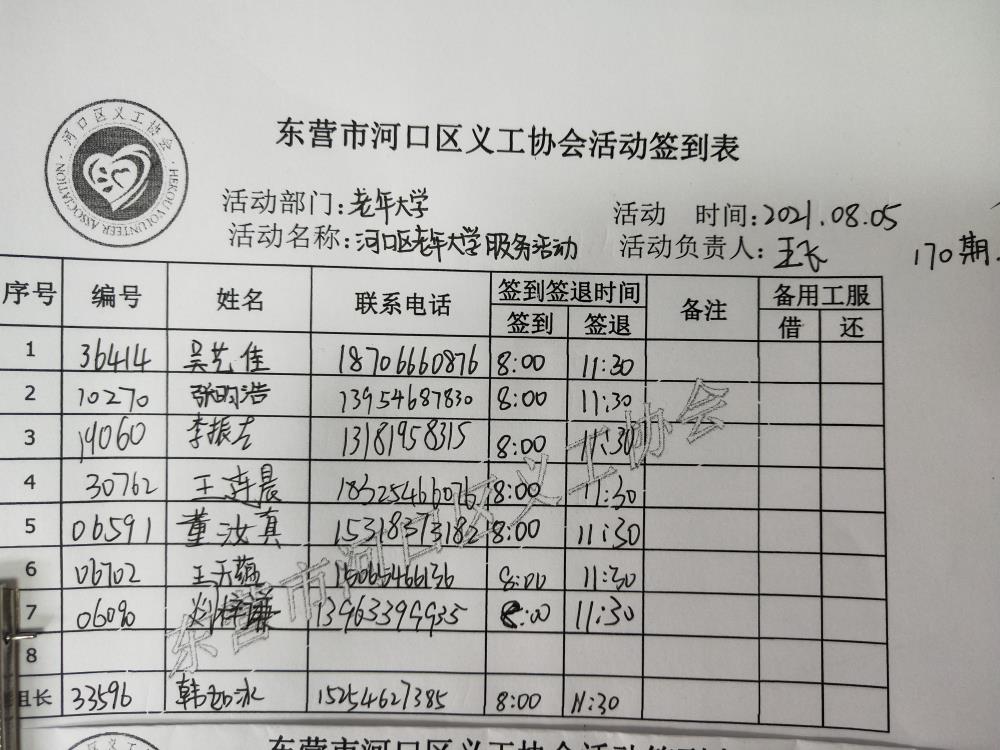 河口区义工协会
HEKOU VOLUNTEER ASSOCIATION
东营市河口区义工协会活动签到表
活动部门：老年大学 活动 时间：2021.08.05
活动名称：河口区老年大学服务活动 活动负责人：王长 170期
序号 编号 姓名 联系电话 签到签退时间 备注 备用工服
签到 签退 借 还
1 36414 吴艺佳 18706660876 8:00 11:30
2 10270 张昀浩 13954687830 8:00 11:30
3 19060 李振左 13181958315 8:00 11:30
4 30762 王连晨 18325466076 8:00 11:30
5 06591 董汝真 15318373182 8:00 11:30
6 06702 王天蕴 15065466136 8:00 11:30
7 06090 刘梓谦 13963399935 8:00 11:30
8
组长 33596 韩如冰 15254627385 8:00 11:30
东营市河口区义工协会
东营市河口区义工协会活动签到表